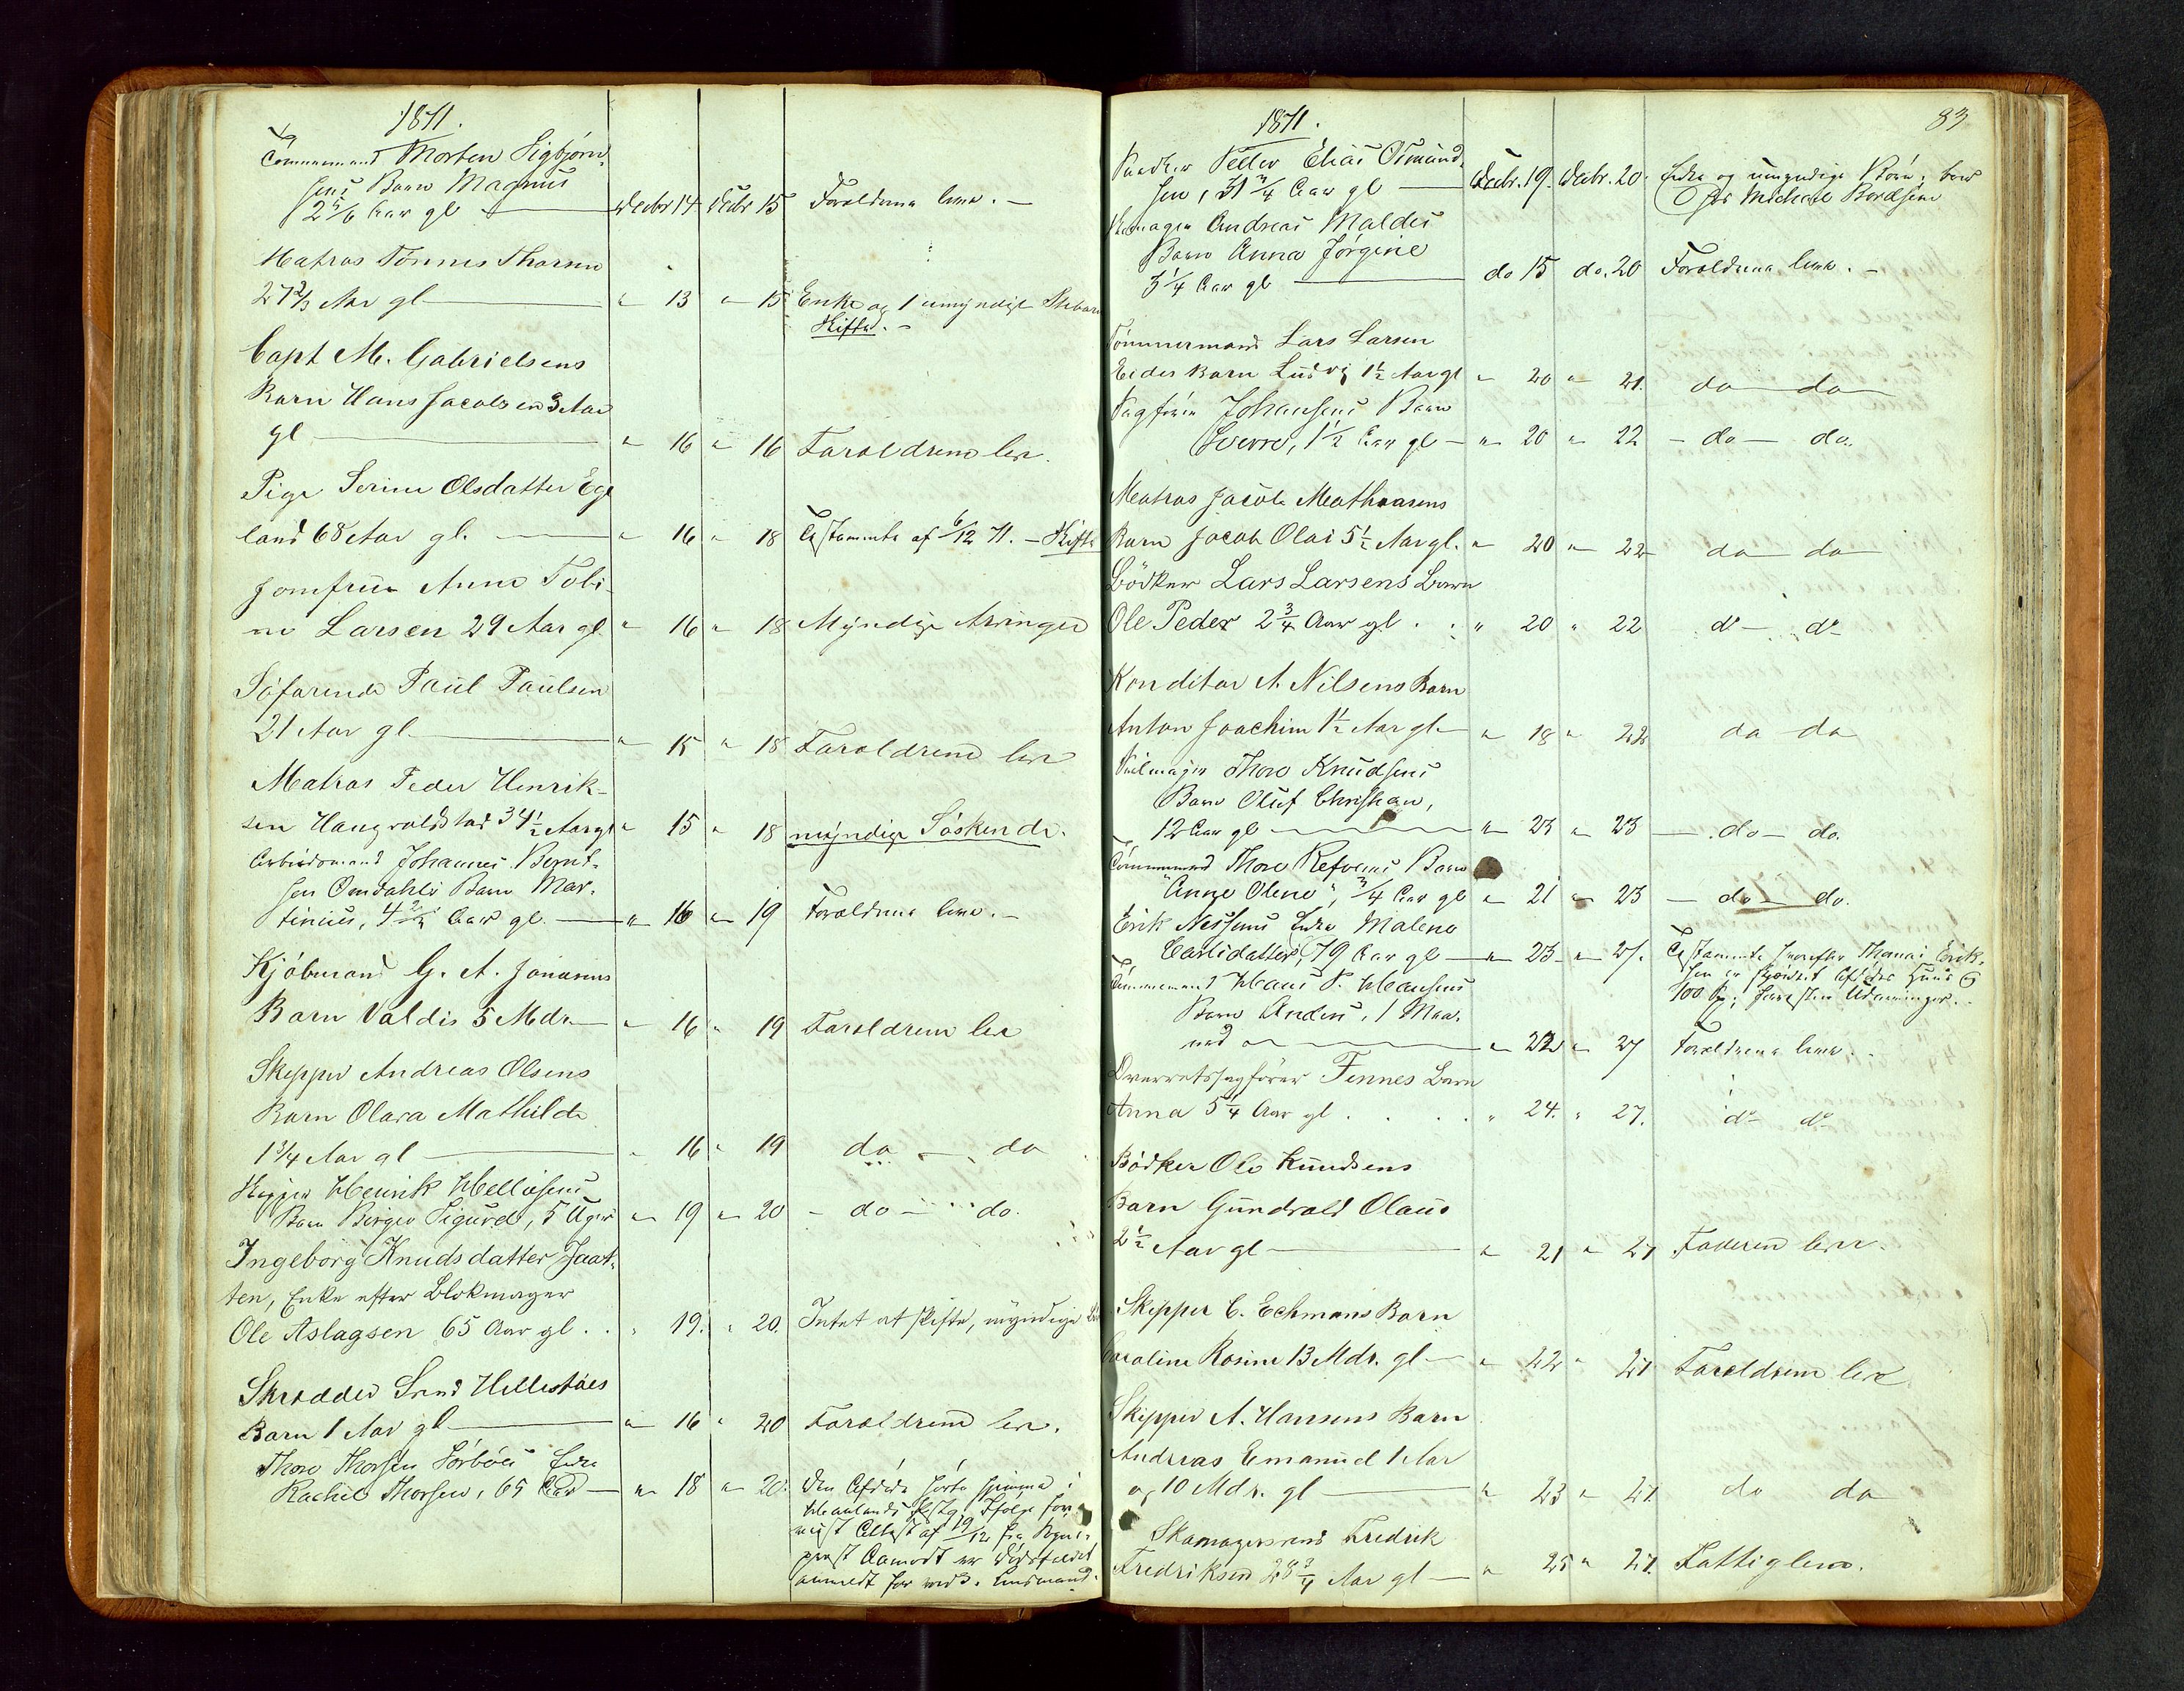 1871.
Tømmermand Morten Sigbjørn-
sens Barn Magnus
2 5/6 Aar gl — Decbr 14 Decbr 15 Forældrene leve. —
Matros Tønnes Thorsen
27 2/3 Aar gl — " 13 " 15 Enke og 1 umyndigt Stebarn
Skifte. —
Capt M. Gabrielsens
Barn Hans Jacobsen 3 Aar
gl — " 16 " 16 Forældrene leve.
Pige Serine Olsdatter Ege
land 68 Aar gl. — " 16 " 18 Testamente af 6/12 71. — Skifte
Jomfrue Anne Tobi-
ne Larsen 29 Aar gl " 16 " 18 Myndige Arvinger
Søfarende Paul Paulsen
21 Aar gl. — " 15 " 18 Forældrene leve
Matros Peder Henrik-
sen Haugvaldstad 34 1/2 Aar gl " 15 " 18 myndige Søskende.
Arbeidsmand Johannes Bernt-
sen Omdahls Barn Mar-
tinius, Aar gl. — " 16 " 19 Forældrene leve. —
Kjøbmand G. A. Jonasens
Barn Valdis 5 Mdr. — " 16 " 19 Forældrene leve
Skipper Andreas Olsens
Barn Olava Mathilde
1 3/4 Aar gl — " 16 " 19 do — do
Skipper Henrik Helliesens
Barn Birger Sigurd, 5 Uger " 19 " 20 — do — do.
Ingeborg Knudsdatter Jaat-
ten, Enke efter Blokmager
Ole Aslagsen 65 Aar gl . . " 19. " 20. Intet at skifte, myndige
Skrædder Svend Hellestøes
Barn 1 Aar gl — " 16 " 20 Forældrene leve.
Thore Thorsen Sørbøes Enke
Rachel Thorsen, 65 Aar — " 18 " 20. Den Afdøde hørte hjemme i
Ifølge fore-
vist Attest af 19/12 fra Sogne-
præst Aamodt er Dødsfaldet
anmeldt for vedk. Lensmand.
1871.
83
Snedker Petter Elias Osmund-
sen, 31 3/4 Aar gl — Decbr. 19. Decbr. 20. Enke og umyndige Børn; boer
hos Michael Bordsen
Skomager Andreas Maldes
Barn Anna Jørgine
3 1/4 Aar gl — do 15 do. 20 Forældrene leve. —
Tømmermand Lars Larsen
Eides Barn Ludvig 1 1/2 Aar gl " 20 " 21. do — do
Sagfører Johansens Barn
Sverre, 1 1/2 Aar gl — " 20 " 22 — do — do.
Matros Jacob Mathiasens
Barn Jacob Olai 5 1/2 Aar gl. " 20 " 22 do — do
Bødker Lars Larsens Barn
Ole Peder 2 3/4 Aar gl . . " 20 " 22 do — do
Konditor A. Nilsens Barn
Anton Joachim 1 1/2 Aar gl — " 18 " 22 do do
Seilmager Thore Knudsens
Barn Oluf Christian,
12 Aar gl — " 23 " 23 — do — do.
Tømmermand Thore Refvems Barn
"Anne Olene", 3/4 Aar gl " 21 " 23 — do — do.
Erik Nessems Enke Malene
Carlsdatter, 79 Aar gl — " 23 " 27. Testamente hvorefter Thomas Erik-
sen er Afdødes Huus
100 Spd;
Tømmermand Hans P. Hansens
Barn Anders, 1 Maa-
ned — " 22 " 27 Forældrene leve.
Overretssagfører Tennes Barn
Anna 5 1/4 Aar gl . . . . " 24. " 27. do do
Bødker Ole Knudsens
Barn Gundvald Olaus
2 1/2 Aar gl — " 21 " 27 Faderen lever.
Skipper C. Echmans Barn
Caroline Rosine 13 Mdr. gl — " 22 " 27 Forældrene leve
Skipper A. Hansens Barn
Andreas Emanuel 1 Aar
og 10 Mdr. gl — " 23 " 27. do do
Skomagersvend Fredrik
Fredriksen 28 3/4 Aar gl — " 25 " 27. Fattiglem.